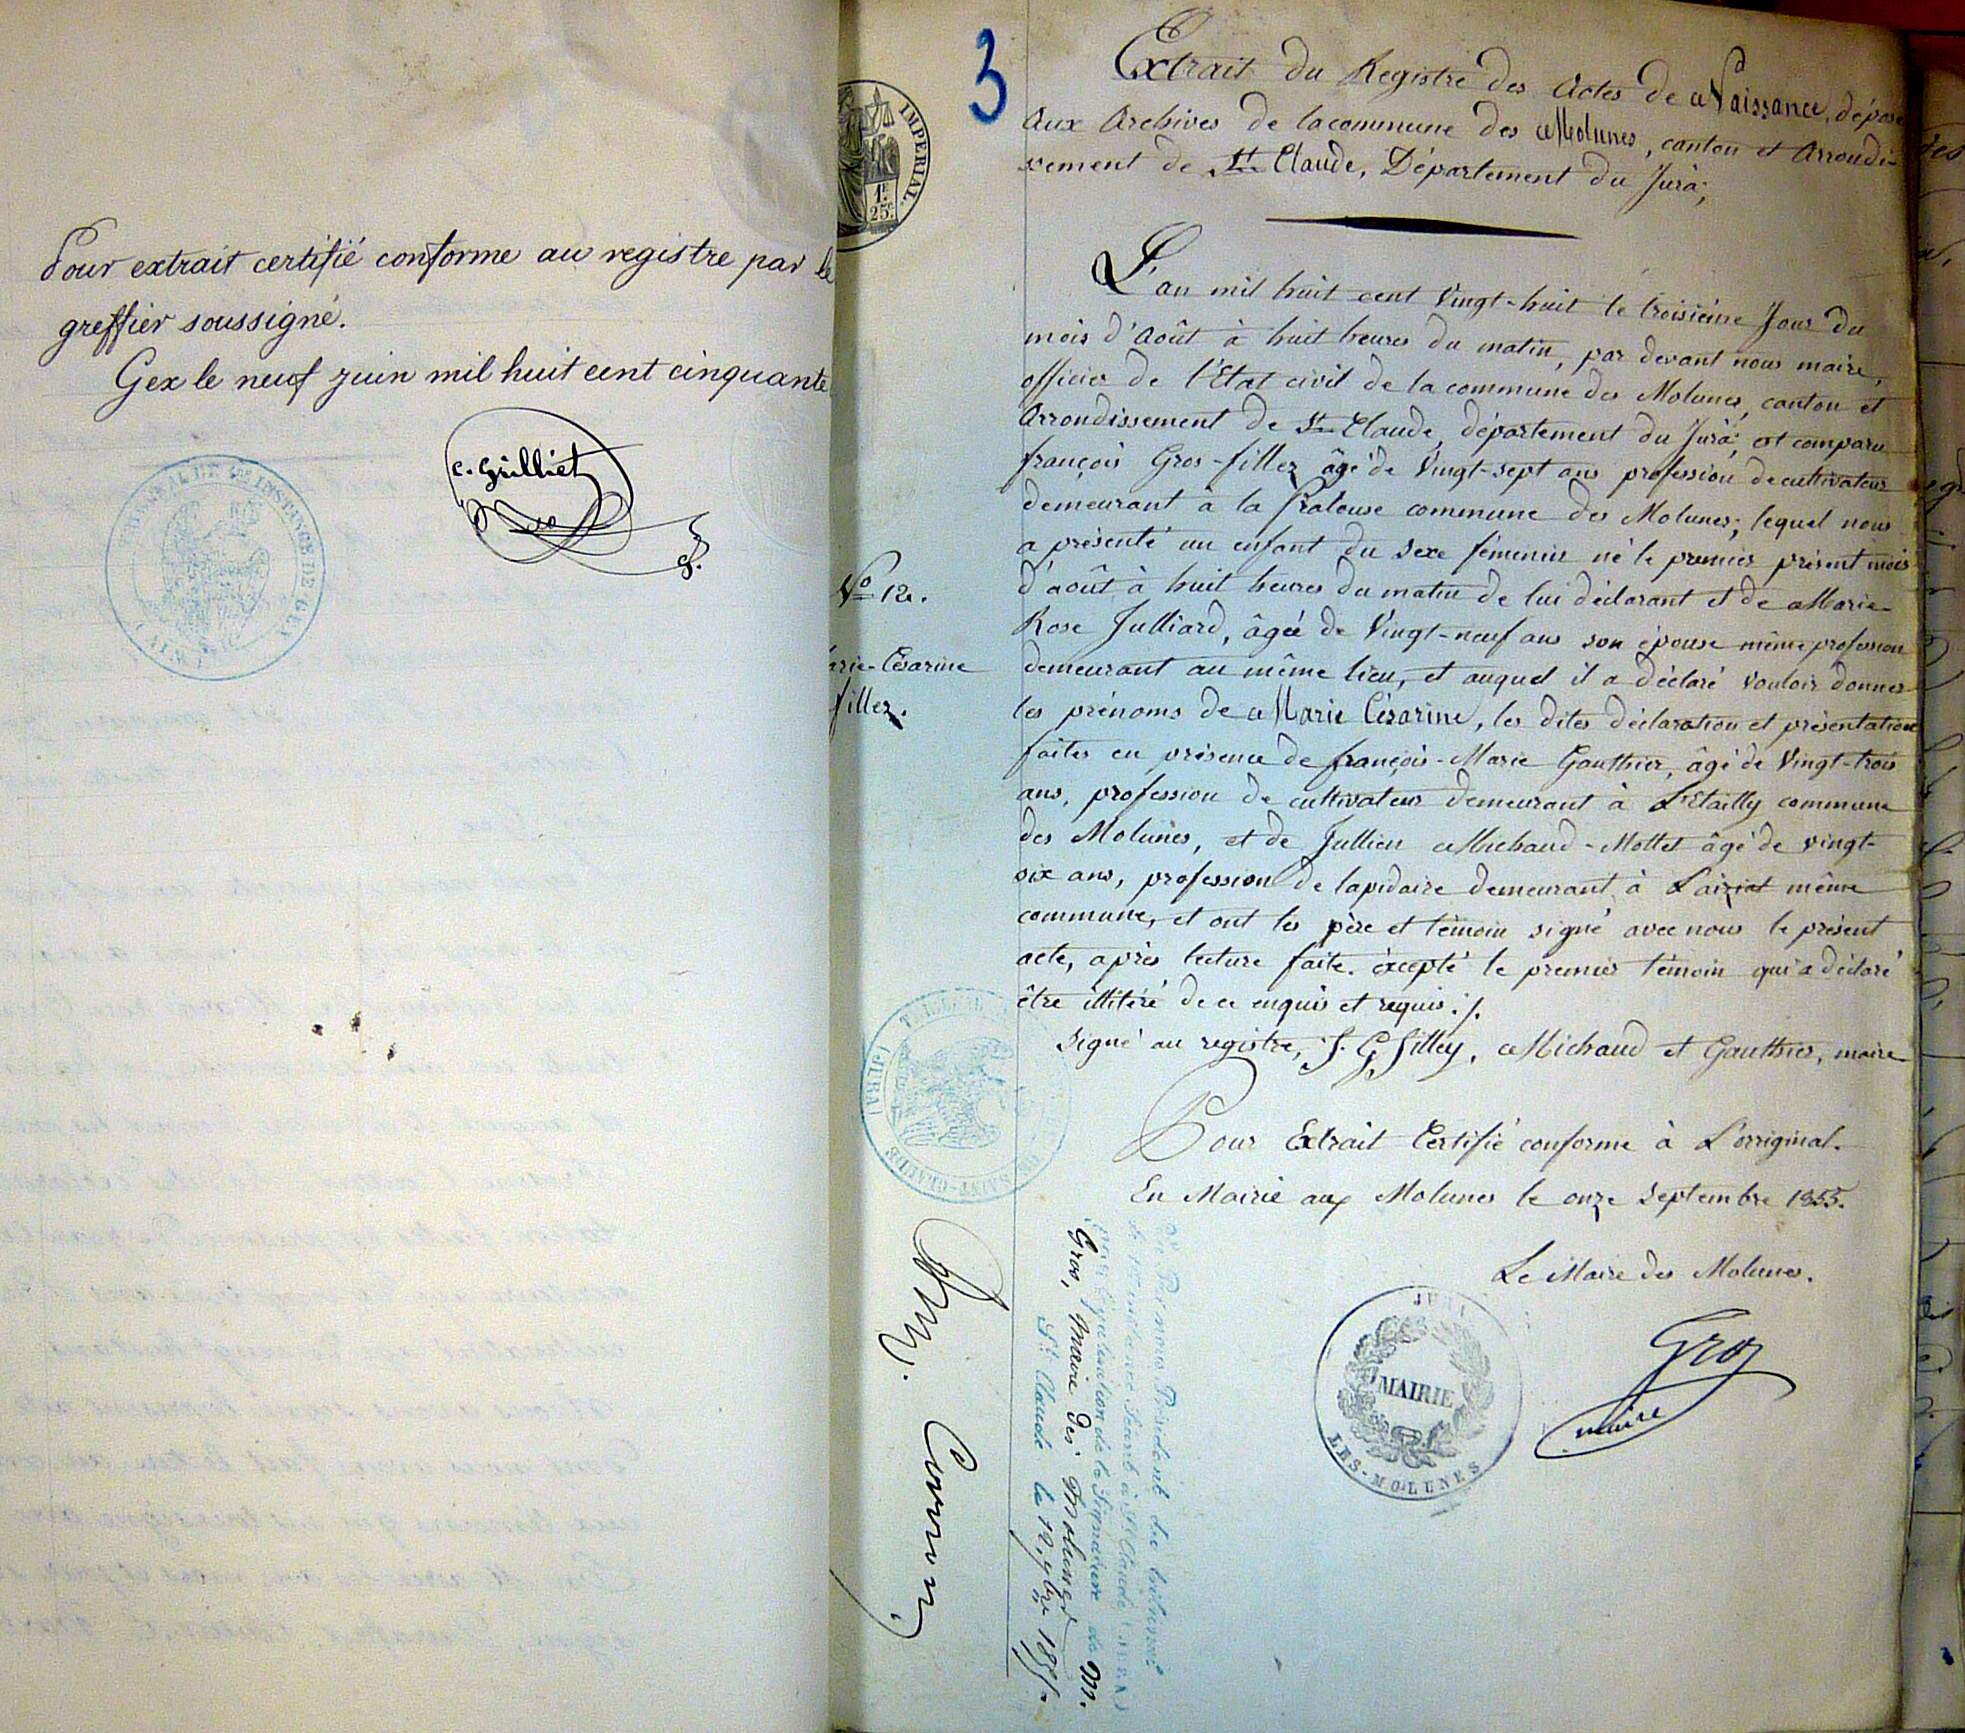 Pour extrait certifié conforme au registre par le
greffier soussigné.
Gex le neuf juin mil huit cent cinquante
C. Grilliet
TRIBUNAL DE 1ERE INSTANCE DE GEX
(AIN)
3
IMPERIAL.
1F.
25c.
Extrait du Registre des Actes de Naissance, dépose
Aux Archives de la commune des Molunes, canton et Arrondis-
sement de St. Claude, Département du Jura;
L'an mil huit cent Vingt-huit le troisième Jour du
mois d'Août à huit heures du matin, par devant nous maire,
officier de l'Etat civil de la commune des Molunes, canton et
Arrondissement de St Claude, département du Jura; est comparu
françois Gros-fillez âgé de Vingt-sept ans profession de cultivateur
demeurant à la Pratouse commune des Molunes; lequel nous
a présenté un enfant du sexe féminin né le premier présent mois
No 12.
d'août à huit heures du matin de lui déclarant et de Marie-
Rose Julliard, âgée de Vingt-neuf ans son épouse même profession
arie-Césarine
fillez.
demeurant au même lieu, et auquel il a déclaré vouloir donner
les prénoms de Marie Césarine, les dites déclaration et présentation
faites en présence de françois-Marie Gauthier, âgé de Vingt-trois
ans, profession de cultivateur demeurant à L'Etailly commune
des Molunes, et de Jullien Michaud-Mottet âgé de vingt-
six ans, profession de lapidaire demeurant à Laiziat même
commune, et ont les père et témoin signé avec nous le présent
acte, après lecture faite. éxcepté le premier témoin qui a déclaré
être illitéré de ce enquis et requis ./.
Signé au registre, f. G filley, Michaud et Gauthier, maire
TRIBUNAL
DE SAINT-CLAUDE
(JURA)
Pour Extrait Certifié conforme à L'orriginal.
En Mairie aux Molunes le onze Septembre 1855.
Le Maire des Molunes.
Gros
maire
JURA
MAIRIE
LES-MOLUNES
Vu Par nous Président du tribunal
de 1re instance Séant à St Claude (JURA)
Pour légalisation de la Signature de M.
Gros, Maire des Molunes
St Claude le 12, 7bre 1855.